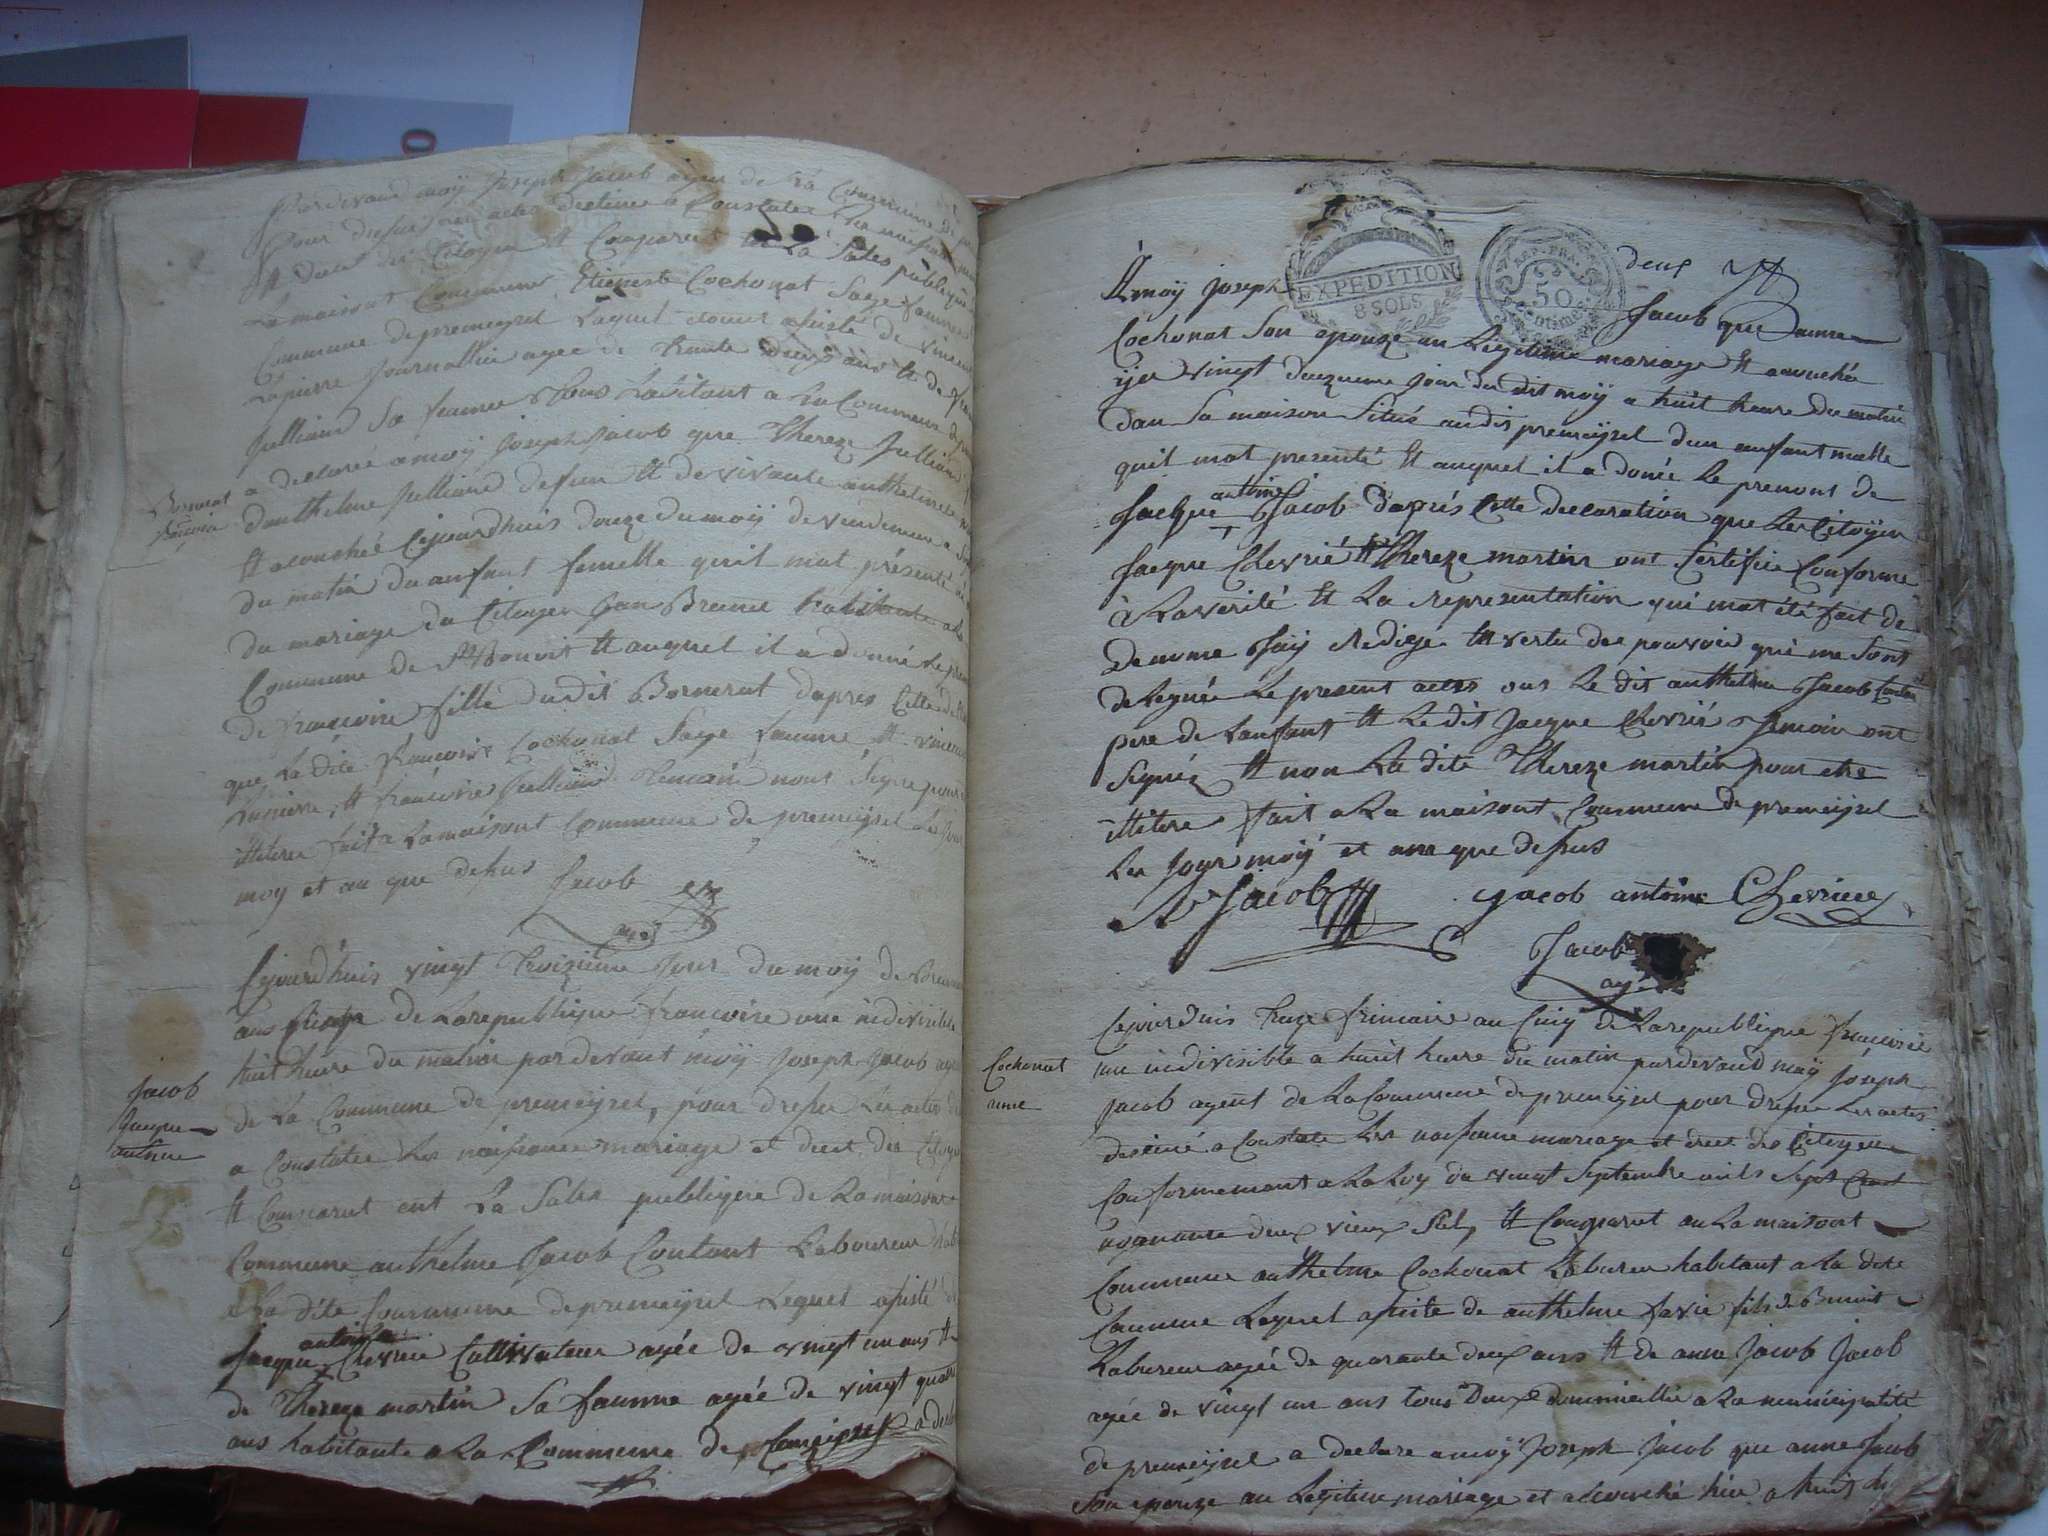 Pardevand moÿ Joseph Jacob agen de La Commune de
Pour dresser les actes destines a Constater Les naissance
Et deces des Citoyen Et Comparut La Sales publique
La maisont Commune Etienete Cochonat Sage famme
Commune de premeyzel Laquel etant asisté de vincent
Lapierre Journallier agee de trante deux ans Et de
Jullian Sa famme tous habitant a La Commune de
a declaree a moÿ Joseph Jacob que Thereze Jullian
danthelme Julliand defun Et de vivante anthelmete
Et acouchéé Cejourdhuis douze du moÿ de vendemiere
du matin du anfant femelle quil mat présenté
du mariage du Citoyen Jean habitant a La
Commune de Et auquel il a donné Le prenont
de francoise fille dudit dapres Cette de
que La dite francoise Cochonat Sage famme Et vincent
Lapierre, Et francoise Jullian temoin nont Signe pour
illitere fait a Lamaisont Commune de premeyzel Les Jour
moy et an que desus Jacob
agt
Cejourdhuis vingt troizieme Jour du moÿ de Brumaire
ans de La republique francoise une indivisible
huit heure du matin pardevant moÿ Joseph Jacob agen
de La Commune de premeyzel, pour dresser Les actes
a Constater Les naissance mariage et deces des Citoyen
Et Comparut ent La Sales publique de La maisont
Commune anthelme Jacob Contant Laboureur
a La dite Commune de premeyzel Lequel asisté de
antoine
Jacque Chevrié Cultivateur agéé de vingt un ans Et
de Thereze martin Sa famme agéé de vingt quatre
ans habitante a La Commune de
Jacob
Jacque
antoine
deux
A moÿ Joseph Jacob que anne
EXPEDITION
8 SOLS
50
Centimes
Cochonat Son epouze an Legitime mariage Et acouchée
ÿer vingt deuzieme jour du dit moÿ a huit heure du matin
dan Sa maison Situé audit premeyzel dun anfant malle
quil mat presenté Et auquel il a donée Le prenont de
antoine
Jacque Jacob dapres Cette declaration que Les Citoÿen
Jacque Chevrié Et Thereze martin ont Certifié Conforme
à La verité Et La representation qui mat été fait de
denome Jaÿ Redige Et vertu des pouvoir qui me Sont
delegués Le present actes ous Le dit anthelme Jacob Contant
pere de Lanfant Et Le dit Jacque Chevrié temoin ont
Signéz Et non La dite Thereze martin pour etre
illitere fait a La maisont Commune de premeyzel
Les Jour moÿ et ans que desus
A Jacob Jacob antoine Chevriere
Jacob
agt
Cochonat
anne
Cejourduis treze frimaire an Cinq de La republique francoise
une indivisible a huit heure du matin pardevand moÿ Joseph
Jacob agent de La Commune de premeyzel pour dresser Les actes
destiné a Constater Les naissance mariage et deces des Citoyen
Conformemant a La Loy du vingt Septembre mils Sept Cent
nonante deux vieux Stil, Et Comparut au La maisont
Commune anthelme Cochonat Labureur habitant a La dite
Commune Lequel asisté de anthelme favie fils de Benoit
Labureur agéé de quarante deux ans Et de anne Jacob Jacob
agéé de vingt un ans tous deux doumicillié a La municipalité
de premeyzel a declare a moÿ Joseph Jacob que anne Jacob
Son epouze an Legitime mariage et acouchée hier a huit